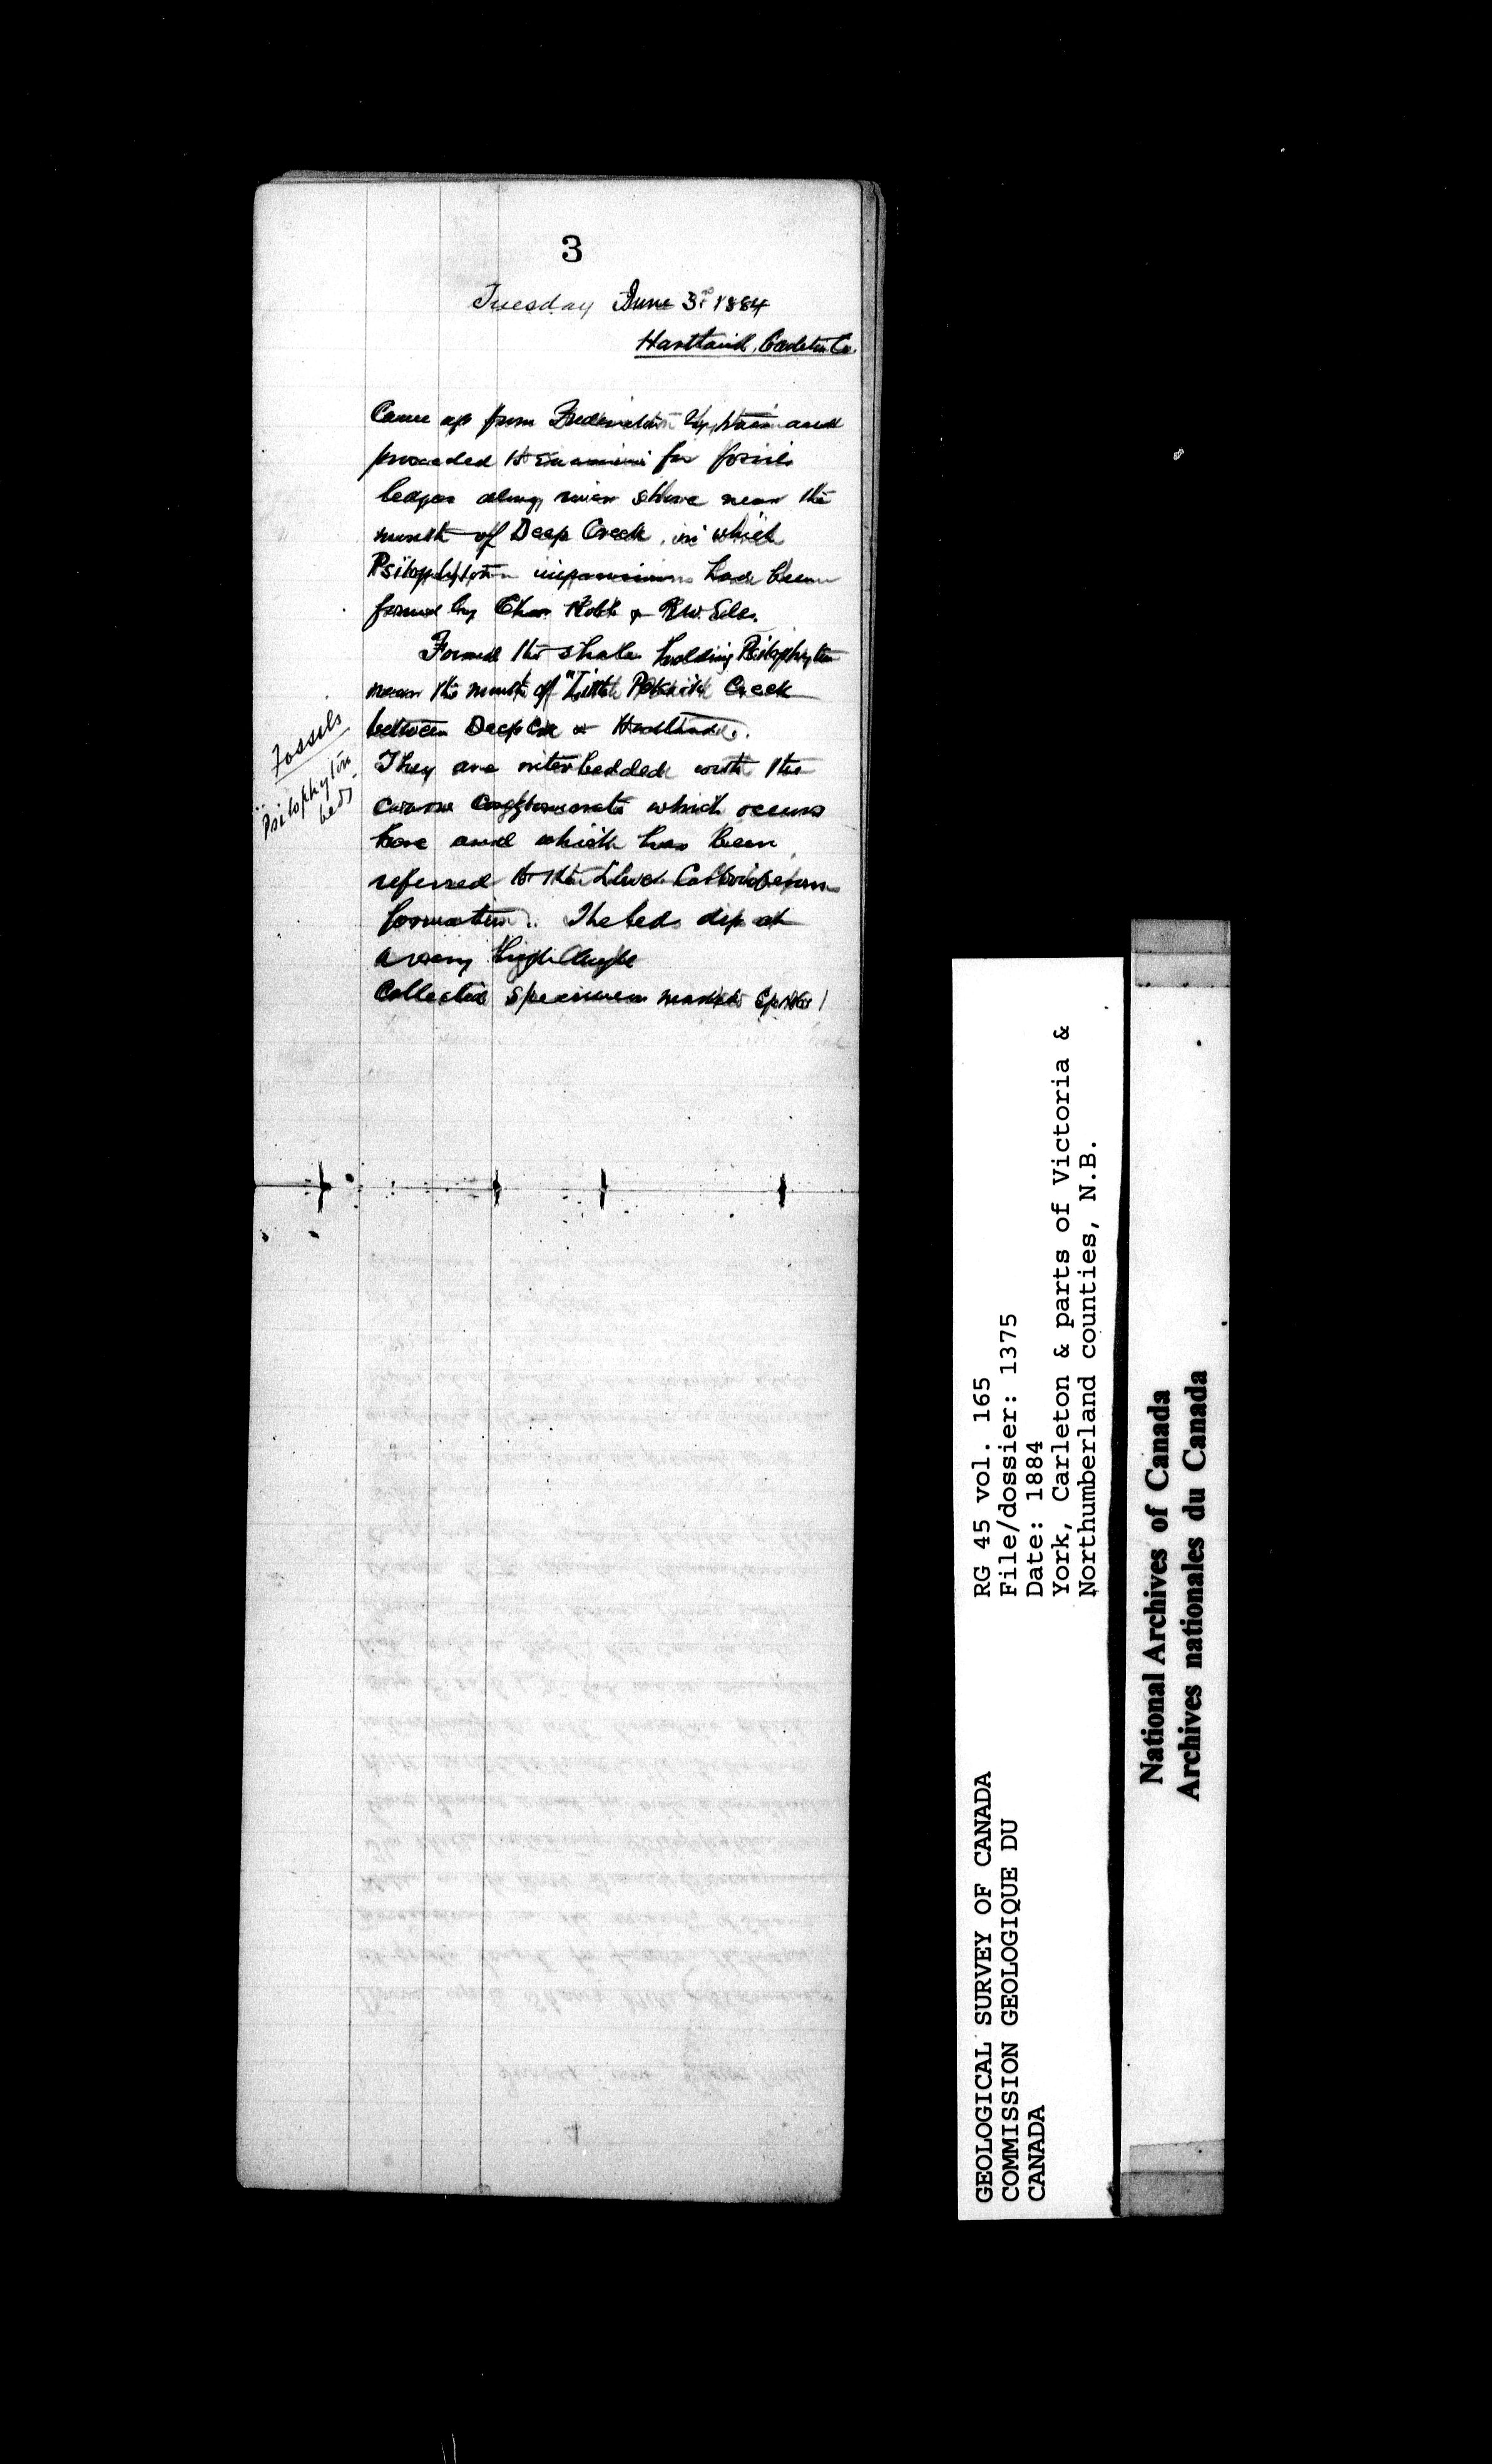 3
Tuesday June 3rd 1884
Hartland, Carleton Co.
Came up from Fredericton by train and
proceeded to examine for fossils
ledges along river shore near the
mouth of Deep Creek, in which
Psilophyton impressions have been
found by Chas Robb & R.W. Ells.
Found the shale holding Psilophyton
near the mouth of "Little Creek
between Deep Ck & Hartland.
They are interbedded with the
coarse conglomerate which occurs
here and which has been
referred to the Lower Carboniferous
formation. The beds dip at
a very high angle
Collected specimen marked
Fossils
Psilophyton
beds
RG 45 vol. 165
File/dossier: 1375
Date: 1884
York, Carleton & parts of Victoria &
Northumberland counties, N.B.
GEOLOGICAL SURVEY OF CANADA
COMMISSION GEOLOGIQUE DU
CANADA
National Archives of Canada
Archives nationales du Canada